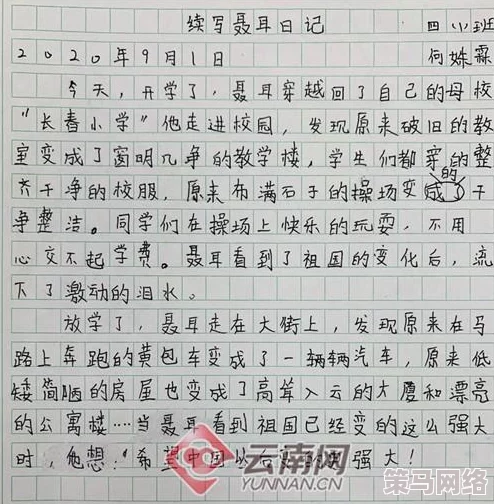 续写聂耳日记 四(1)班
2020年9月1日 何姝霖
今天,开学了,聂耳穿越回了自己的母校
“长春小学”他走进校园,发现原来破旧的教
室变成了窗明几净的教学楼,学生们都穿的整
的
齐干净的校服,原来布满石子的操场变成干
净整洁。同学们在操场上快乐的玩耍,不用
心交不起学费。聂耳看到了祖国的变化后,流
下了激动的泪水。
放学了,聂耳走在大街上,发现原来在马
路上奔跑的黄包车变成了一辆辆汽车,原来低
矮简陋的房屋也变成了高耸入云的大厦和漂亮
的公寓楼……当聂耳看到祖国已经变的这么强大
时,他想:“希望中国以后强大!
云南网
YUNNAN.CN
策马网络